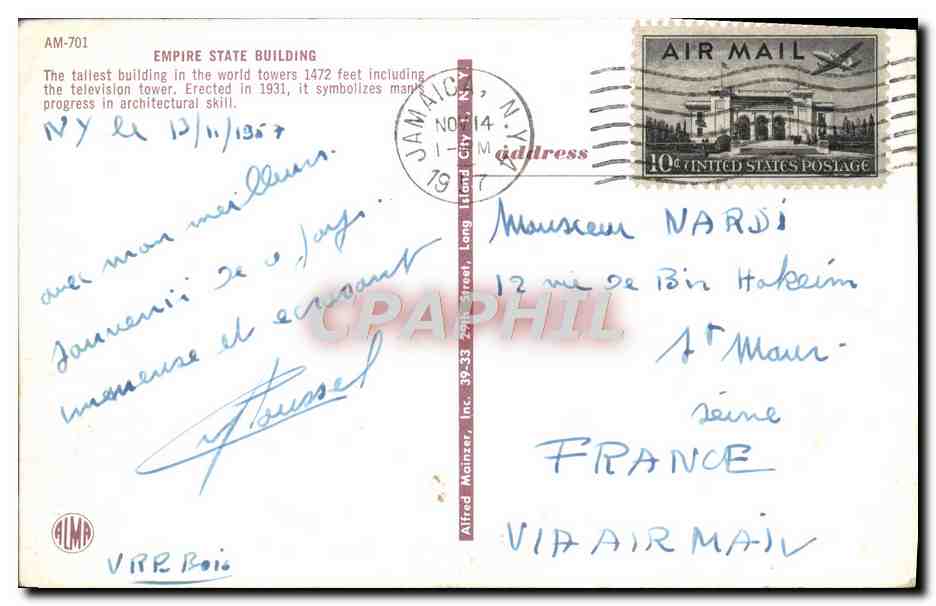 AM-701
EMPIRE STATE BUILDING
The tallest building in the world towers 1472 feet including
the television tower. Erected in 1931, it symbolizes man's
progress in architectural skill.
NY le 13/11/1957
avec mon meilleur
souvenir de ce pays
immense et ecrasant
Roussel
VRP Bois
ALMA
Alfred Mainzer, Inc. 39-33 29th Street, Long Island City 1, N.Y.
JAMAICA, N.Y.
NOV 14
1957
address
AIR MAIL
10¢ UNITED STATES POSTAGE
Monsieur NARDI
12 rue de Bir Hakeim
St Maur-
seine
FRANCE
VIA AIR MAIL
CPAPHIL